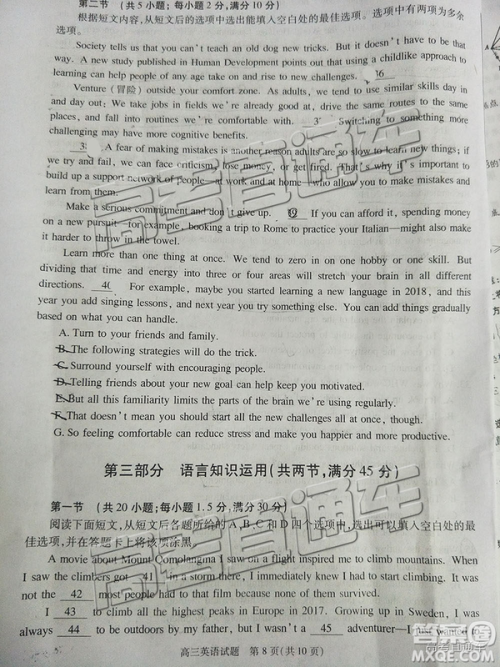 第二节 (共5小题;每小题2分,满分10分)
根据短文内容,从短文后的选项中选出能填入空白处的最佳选项。选项中有两项为多余
选项。
Society tells us that you can't teach an old dog new tricks. But it doesn't have to be that
way. A new study published in Human Development points out that using a childlike approach to
learning can help people of any age take on and rise to new challenges. 36
Venture (冒险) outside your comfort zone. As adults, we tend to use similar skills day in
and day out: We take jobs in fields we're already good at, drive the same routes to the same
places, and fall into routines we're comfortable with. 3 Switching to something more
challenging may have more cognitive benefits.
3 A fear of making mistakes is another reason adults are so slow to learn new things; if
we try and fail, we can face criticism, lose money, or get fired. That's why it's important to
build up a support network of people—at work and at home—who allow you to make mistakes and
learn from them.
Make a serious commitment and don't give up. 39 If you can afford it, spending money
on a new pursuit—for example, booking a trip to Rome to practice your Italian—might also make
it harder to throw in the towel.
Learn more than one thing at once. We tend to zero in on one hobby or one skill. But
dividing that time and energy into three or four areas will stretch your brain in all different
directions. 40 For example, maybe you started learning a new language in 2018, and this
year you add singing lessons, and next year you try something else. You can add things gradually
based on what you can handle.
A. Turn to your friends and family.
B. The following strategies will do the trick.
C. Surround yourself with encouraging people.
D. Telling friends about your new goal can help keep you motivated.
E. But all this familiarity limits the parts of the brain we're using regularly.
F. That doesn't mean you should start all the new challenges all at once, though.
G. So feeling comfortable can reduce stress and make you happier and more productive.
第三部分 语言知识运用(共两节,满分45分)
第一节 (共20小题;每小题1.5分,满分30分)
阅读下面短文,从短文后各题所给的A、B、C和D四个选项中,选出可以填入空白处的最
佳选项,并在答题卡上将该项涂黑。
A movie about Mount Comolangma I saw on a flight inspired me to climb mountains. When
I saw the climbers got 41 in a storm there, I immediately knew I had to start climbing. It was
not the 42 most people had to that film because none of them survived.
I 43 to climb all the highest peaks in Europe in 2017. Growing up in Sweden, I was
always 44 to be outdoors by my father, but I wasn't a 45 adventurer—I just wanted to
高三英语试题 第8页(共10页)
高考直通车
高考直通车
高考直通车
答案圈
MXQE.COM